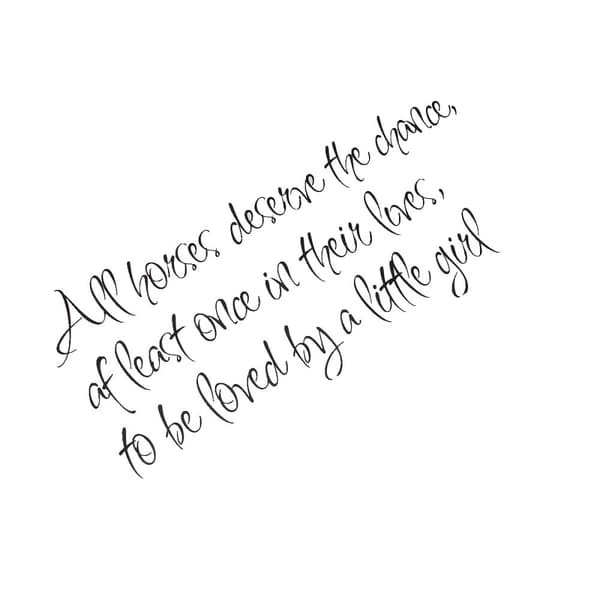 All horses deserve the chance,
at least once in their lives,
to be loved by a little girl